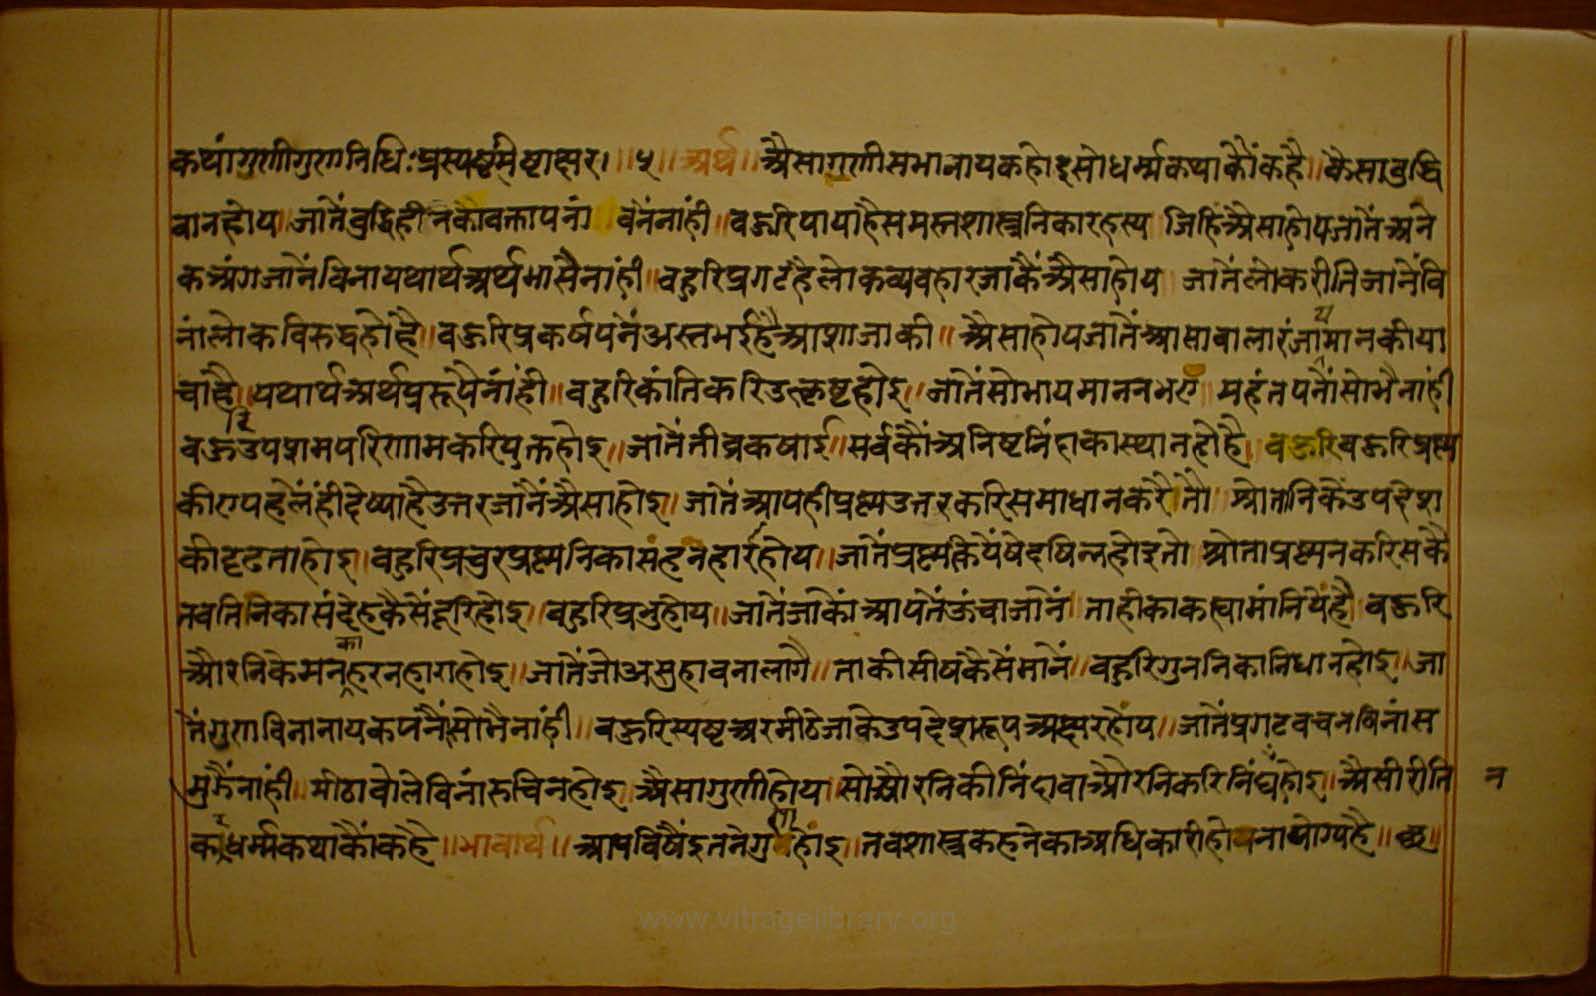 कथांगुणीगुणनिधिःप्रस्पष्टमिष्टाक्षर।॥५॥ अर्थ॥ अैसागुणीसभानायकहोइसोधर्म्मकथाकौंकहै॥ कैसाबुद्धि
वानहोय॥ जातैंबुद्धिहीनकैवक्तापनां बनैंनांही॥ बऊरिपायाहैसमस्तशास्त्रनिकारहस्य जिहिंअैसाहोयजातैंअने
कअंगजानैंविनायथार्थअर्थभासैनांही॥ बहुरिप्रगटहैलोकव्यवहारजाकैंअैसाहोय जातैंलोकरीतिजानेंवि
नांलोकविरुद्धहोहै॥ बऊरिप्रकर्षपनैंअस्तभईहैआशाजाकी॥ अैसाहोयजातैंआसावालारंजायमानकीया
चांहै॥ यथार्थअर्थप्ररूपैनांही॥ बहुरिकांतिकरिउत्कृष्टहोइ॥ जातैंसोभायमाननभएं महंतपनौंसोभैनांही
बऊरिउपशमपरिणामकरियुक्तहोइ॥ जातैंतीव्रकषाई॥ सर्वकौंअनिष्टनिंदाकास्थानहोहै॥ बऊरिबऊरिप्रष्ण
कीएपहलैंहीदेष्याहैउत्तरजानैंअैसाहोइ॥ जातैंआपहीप्रष्णउत्तरकरिसमाधानकरैतौ श्रोतानिकेंउपदेश
कीदृढताहोइ॥ बहुरिप्रचुरप्रष्णनिकासंहनहारहोय॥ जातैंप्रष्णकियेंषेदषिन्नहोइतो श्रोताप्रष्णनकरिसकै
तबतिनिकासंदेहकैसेंदूरिहोइ॥ बहुरिप्रभुहोय॥ जातैंजाकौंआपतैंऊंचाजानैं ताहीकाकह्यामांनियेंहै॥ बऊरि
औरनिकेमनकाहरनहाराहोइ॥ जातैंजोअसुहावनालागै॥ ताकीसीषकैसेंमानें॥ बहुरिगुननिकानिधानहोइ॥ जा
तैंगुणविनानायकपनौंसोभैनांही॥ बऊरिस्पष्टअरमीठेजाकेउपदेशरूपअक्षरहोय॥ जातैंप्रगटवचनविनांस
मुझैंनांही॥ मीठाबोलेविनांरुचिनहोइ॥ अैसागुणीहोय॥ सोऔरनिकीनिंदावाऔरनिकरिनिंद्यहोइ॥ अैसीरीति न
करिधर्म्मकथाकौंकहै॥ भावार्थ॥ आपविषैंइतनेगुणहोंइ॥ तबशास्त्रकहनेकाअधिकारीहोयनायोग्यहै॥ छ॥
www.vitragelibrary.org